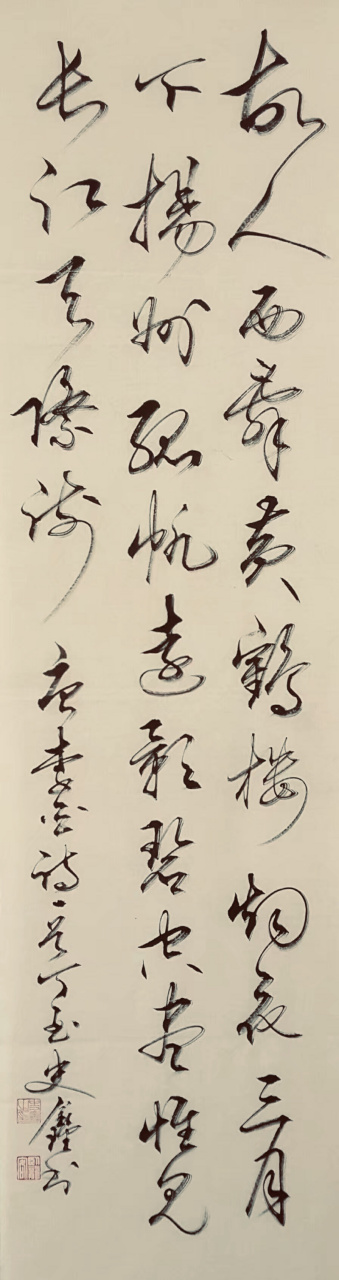 故人西辞黄鹤楼烟花三月
下揚州孤帆遠影碧空尽惟见
长江天際流
唐李白诗一首丁亥史书